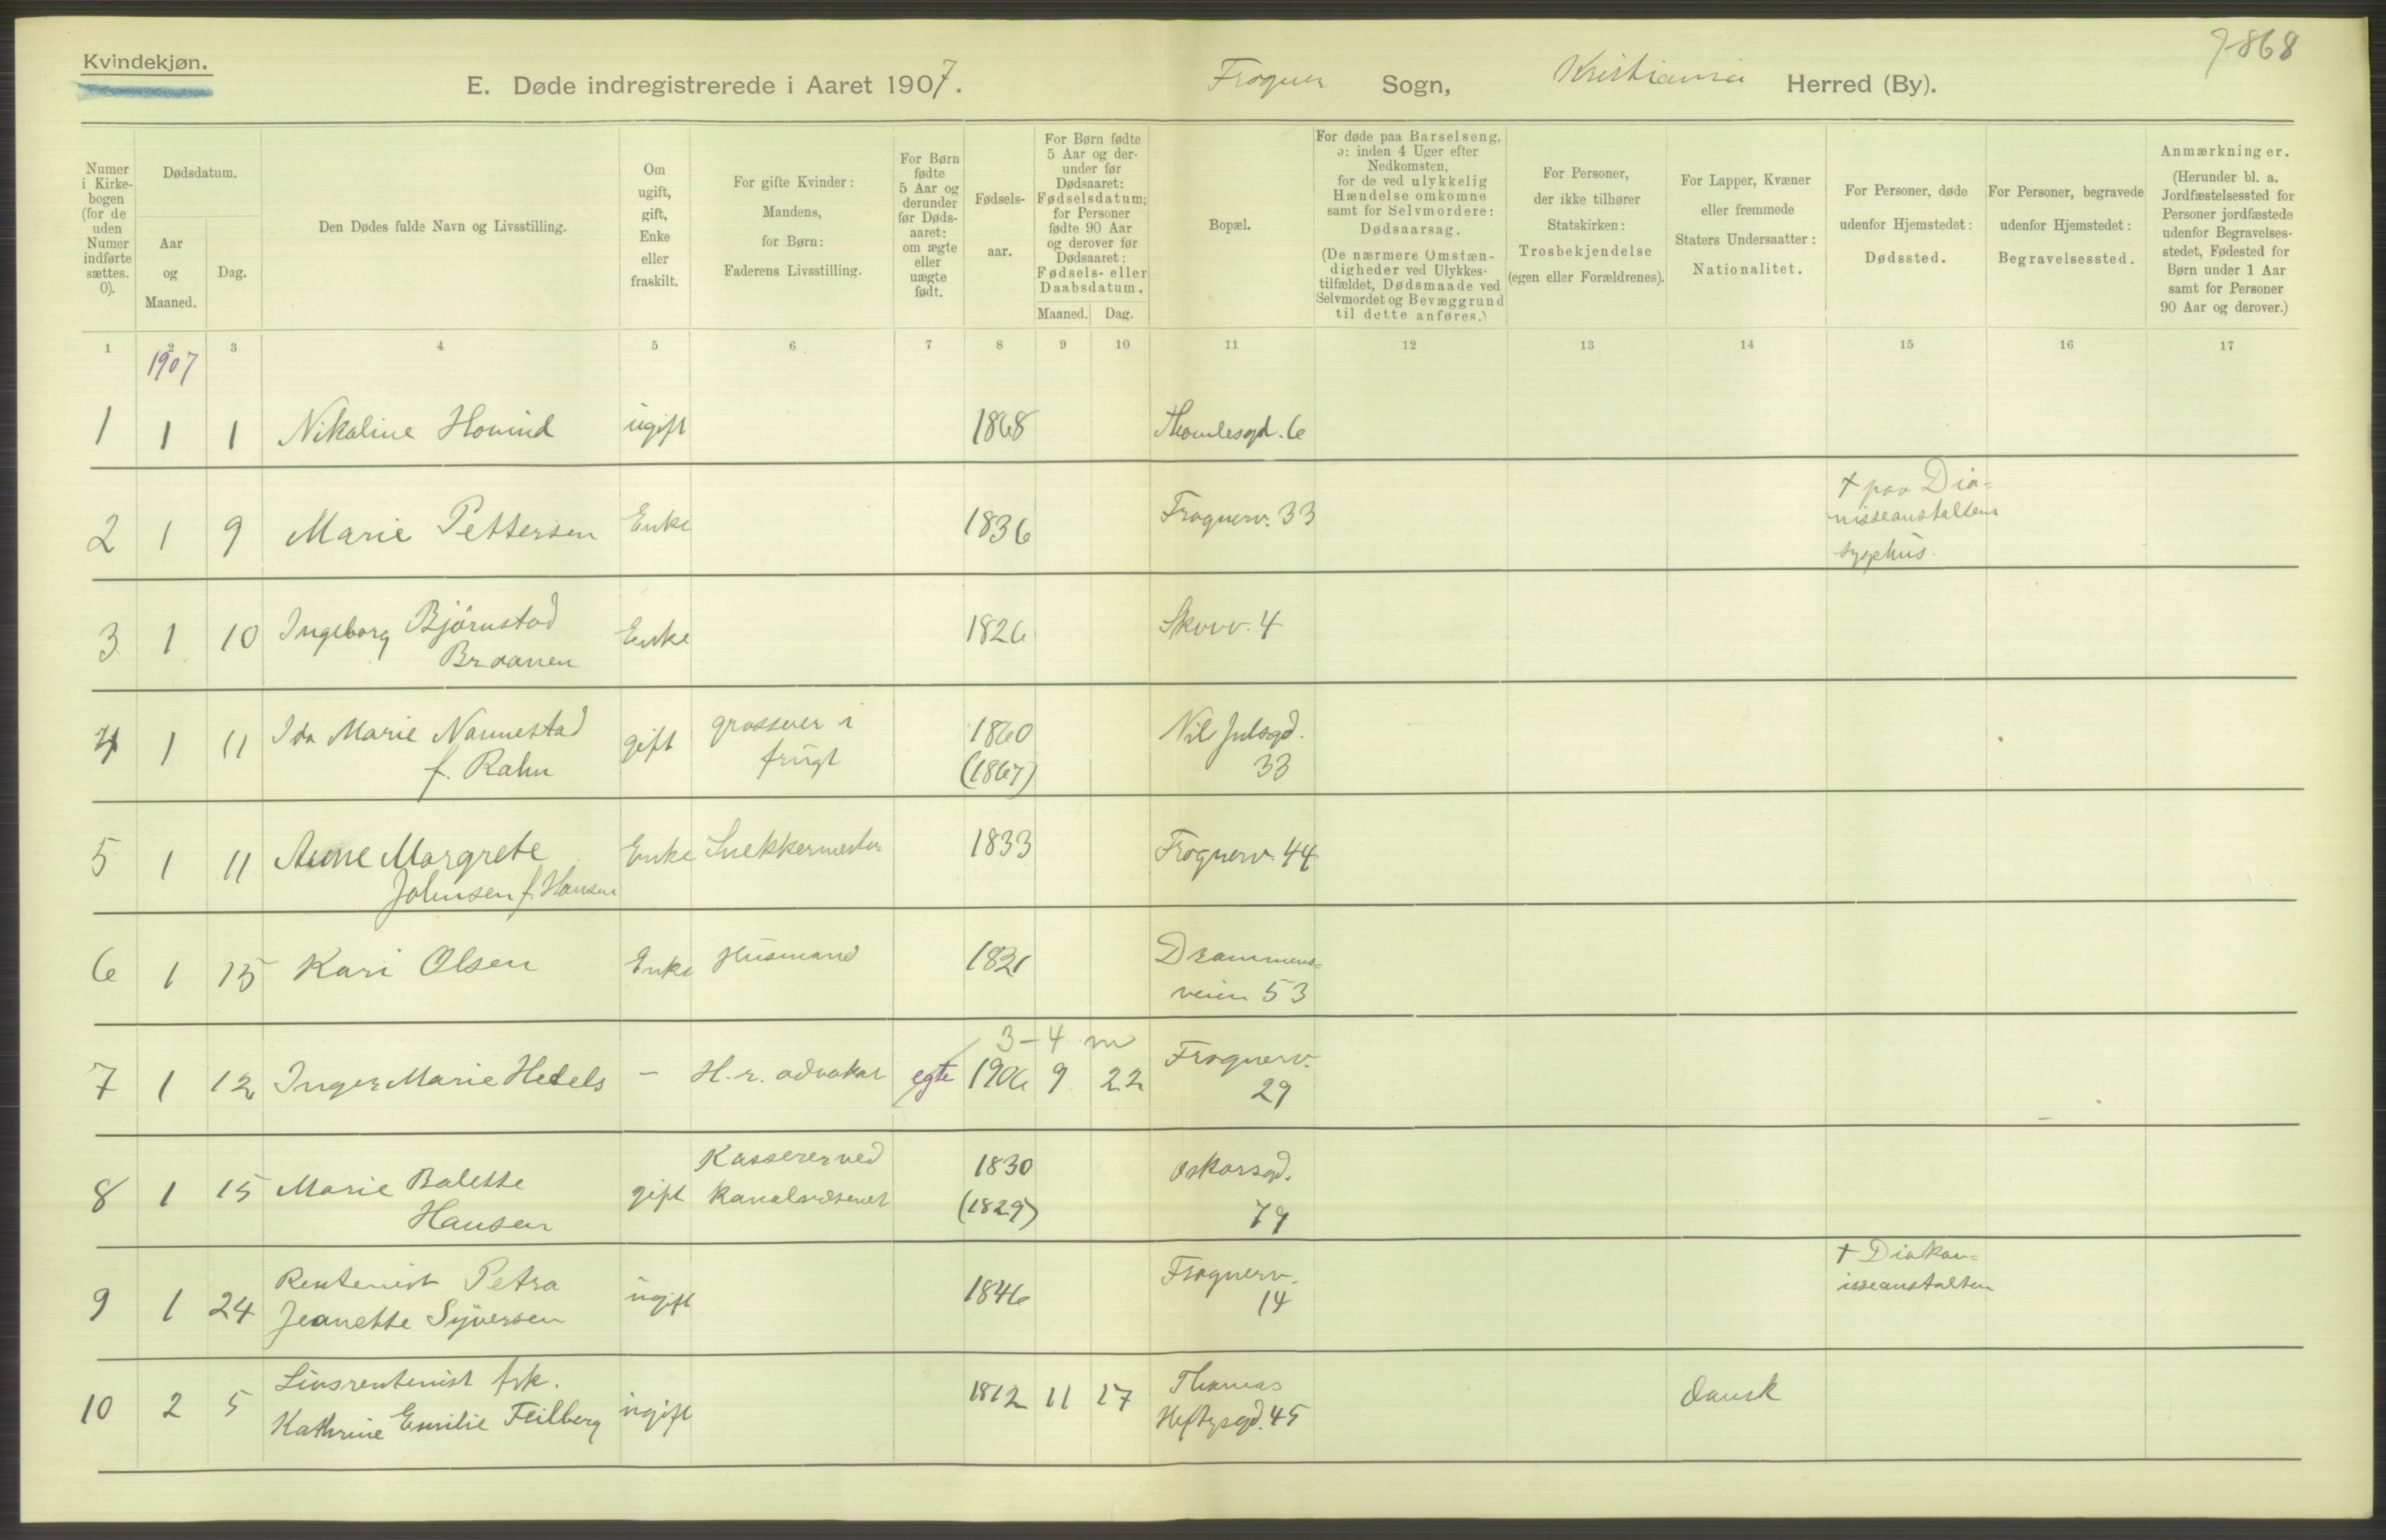 Kvindekjøn.
7868
E. Døde indregistrerede i Aaret 1907. Frogner Sogn, Kristiania Herred (By).
Numer i Kirkebogen (for de uden Numer indførte sættes. 0).
Dødsdatum.
Aar og Maaned.
Dag.
Den Dødes fulde Navn og Livsstilling.
Om ugift, gift, Enke eller fraskilt.
For gifte Kvinder: Mandens, for Børn: Faderens Livsstilling.
For Børn fødte 5 Aar og derunder før Dødsaaret: om ægte eller uægte født.
Fødselsaar.
For Børn fødte 5 Aar og derunder før Dødsaaret: Fødselsdatum; for Personer fødte 90 Aar og derover før Dødsaaret: Fødsels- eller Daabsdatum.
Maaned. Dag.
Bopæl.
For døde paa Barselseng, ɔ: inden 4 Uger efter Nedkomsten, for de ved ulykkelig Hændelse omkomne samt for Selvmordere: Dødsaarsag.
(De nærmere Omstændigheder ved Ulykkestilfældet, Dødsmaade ved Selvmordet og Bevæggrund til dette anføres.)
For Personer, der ikke tilhører Statskirken: Trosbekjendelse (egen eller Forældrenes).
For Lapper, Kvæner eller fremmede Staters Undersaatter: Nationalitet.
For Personer, døde udenfor Hjemstedet: Dødssted.
For Personer, begravede udenfor Hjemstedet: Begravelsessted.
Anmærkninger.
(Herunder bl. a. Jordfæstelsessted for Personer jordfæstede udenfor Begravelsesstedet, Fødested for Børn under 1 Aar samt for Personer 90 Aar og derover.)
1 2 3 4 5 6 7 8 9 10 11 12 13 14 15 16 17
1907
1 1 1 Nikoline Hovind ugift 1868 Thomlesgd. 6
2 1 9 Marie Pettersen Enke 1836 Frognerv. 33 † paa Dia=
nisseanstaltens
sygehus.
3 1 10 Ingeborg Bjørnstad Enke 1826 Skovv. 4
Braanen
4 1 11 Ida Marie Nannestad gift grosserer i 1860 Nil Julsgd.
f. Rahn frugt (1867) 33
5 1 11 Anne Margrete Enke Snekkermester 1833 Frognerv. 44
Johnsen f. Hansen
6 1 15 Kari Olsen Enke Husmand 1821 Drammens=
veien 53
3-4 m
7 1 12 Inger Marie Hedels - H.r. advokat egte 1906 9 22 Frognerv.
29
8 1 15 Marie Bolette gift Kassererved 1830 Oskarsgd.
Hansen kanalvæsenet (1829) 79
9 1 24 Rentenist Petra ugift 1846 Frognerv. † Diakon=
Jeanette Syversen 14 isseanstalten
10 2 5 Livsrentenist frk. ugift 1812 11 17 Thomas Dansk
Kathrine Emilie Feilberg Heftysgd. 45